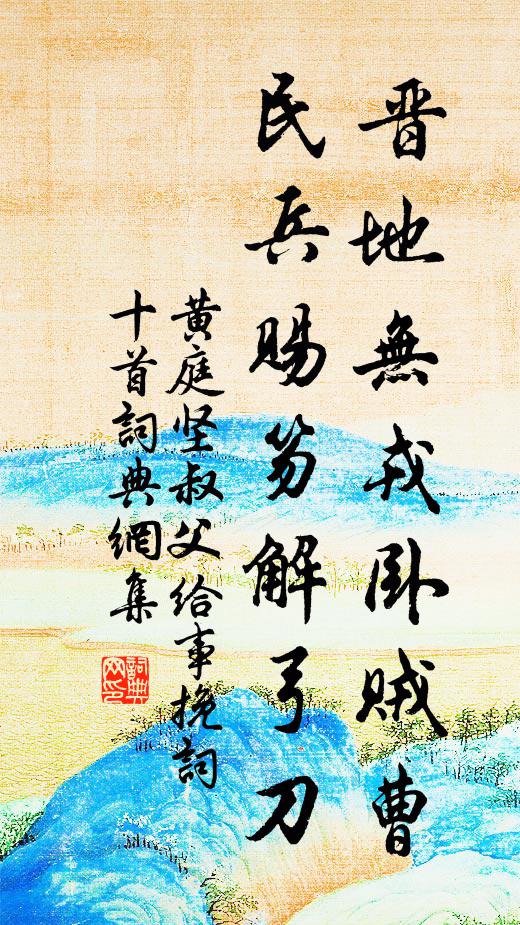 晋地無戎卧贼曹
民兵賜笏解弓刀
黄庭坚叔父给事挽詞
十首詞典網集
詞典网印